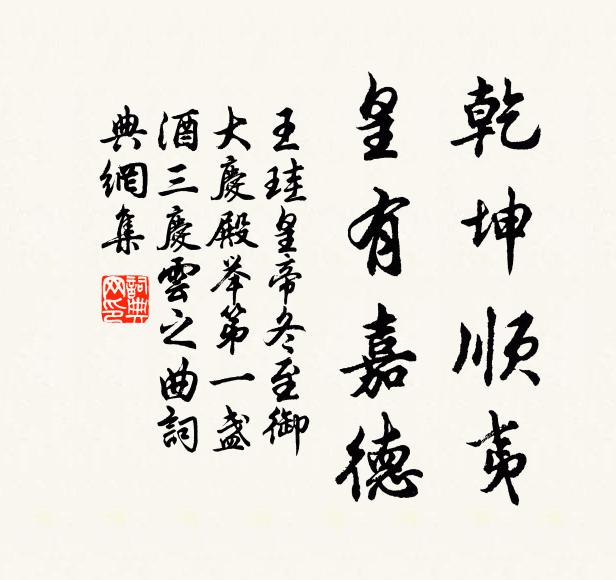 乾坤順夷
皇有嘉德
王珪皇帝冬至御
大慶殿举第一盏
酒三慶雲之曲詞
典網集
詞典
网印